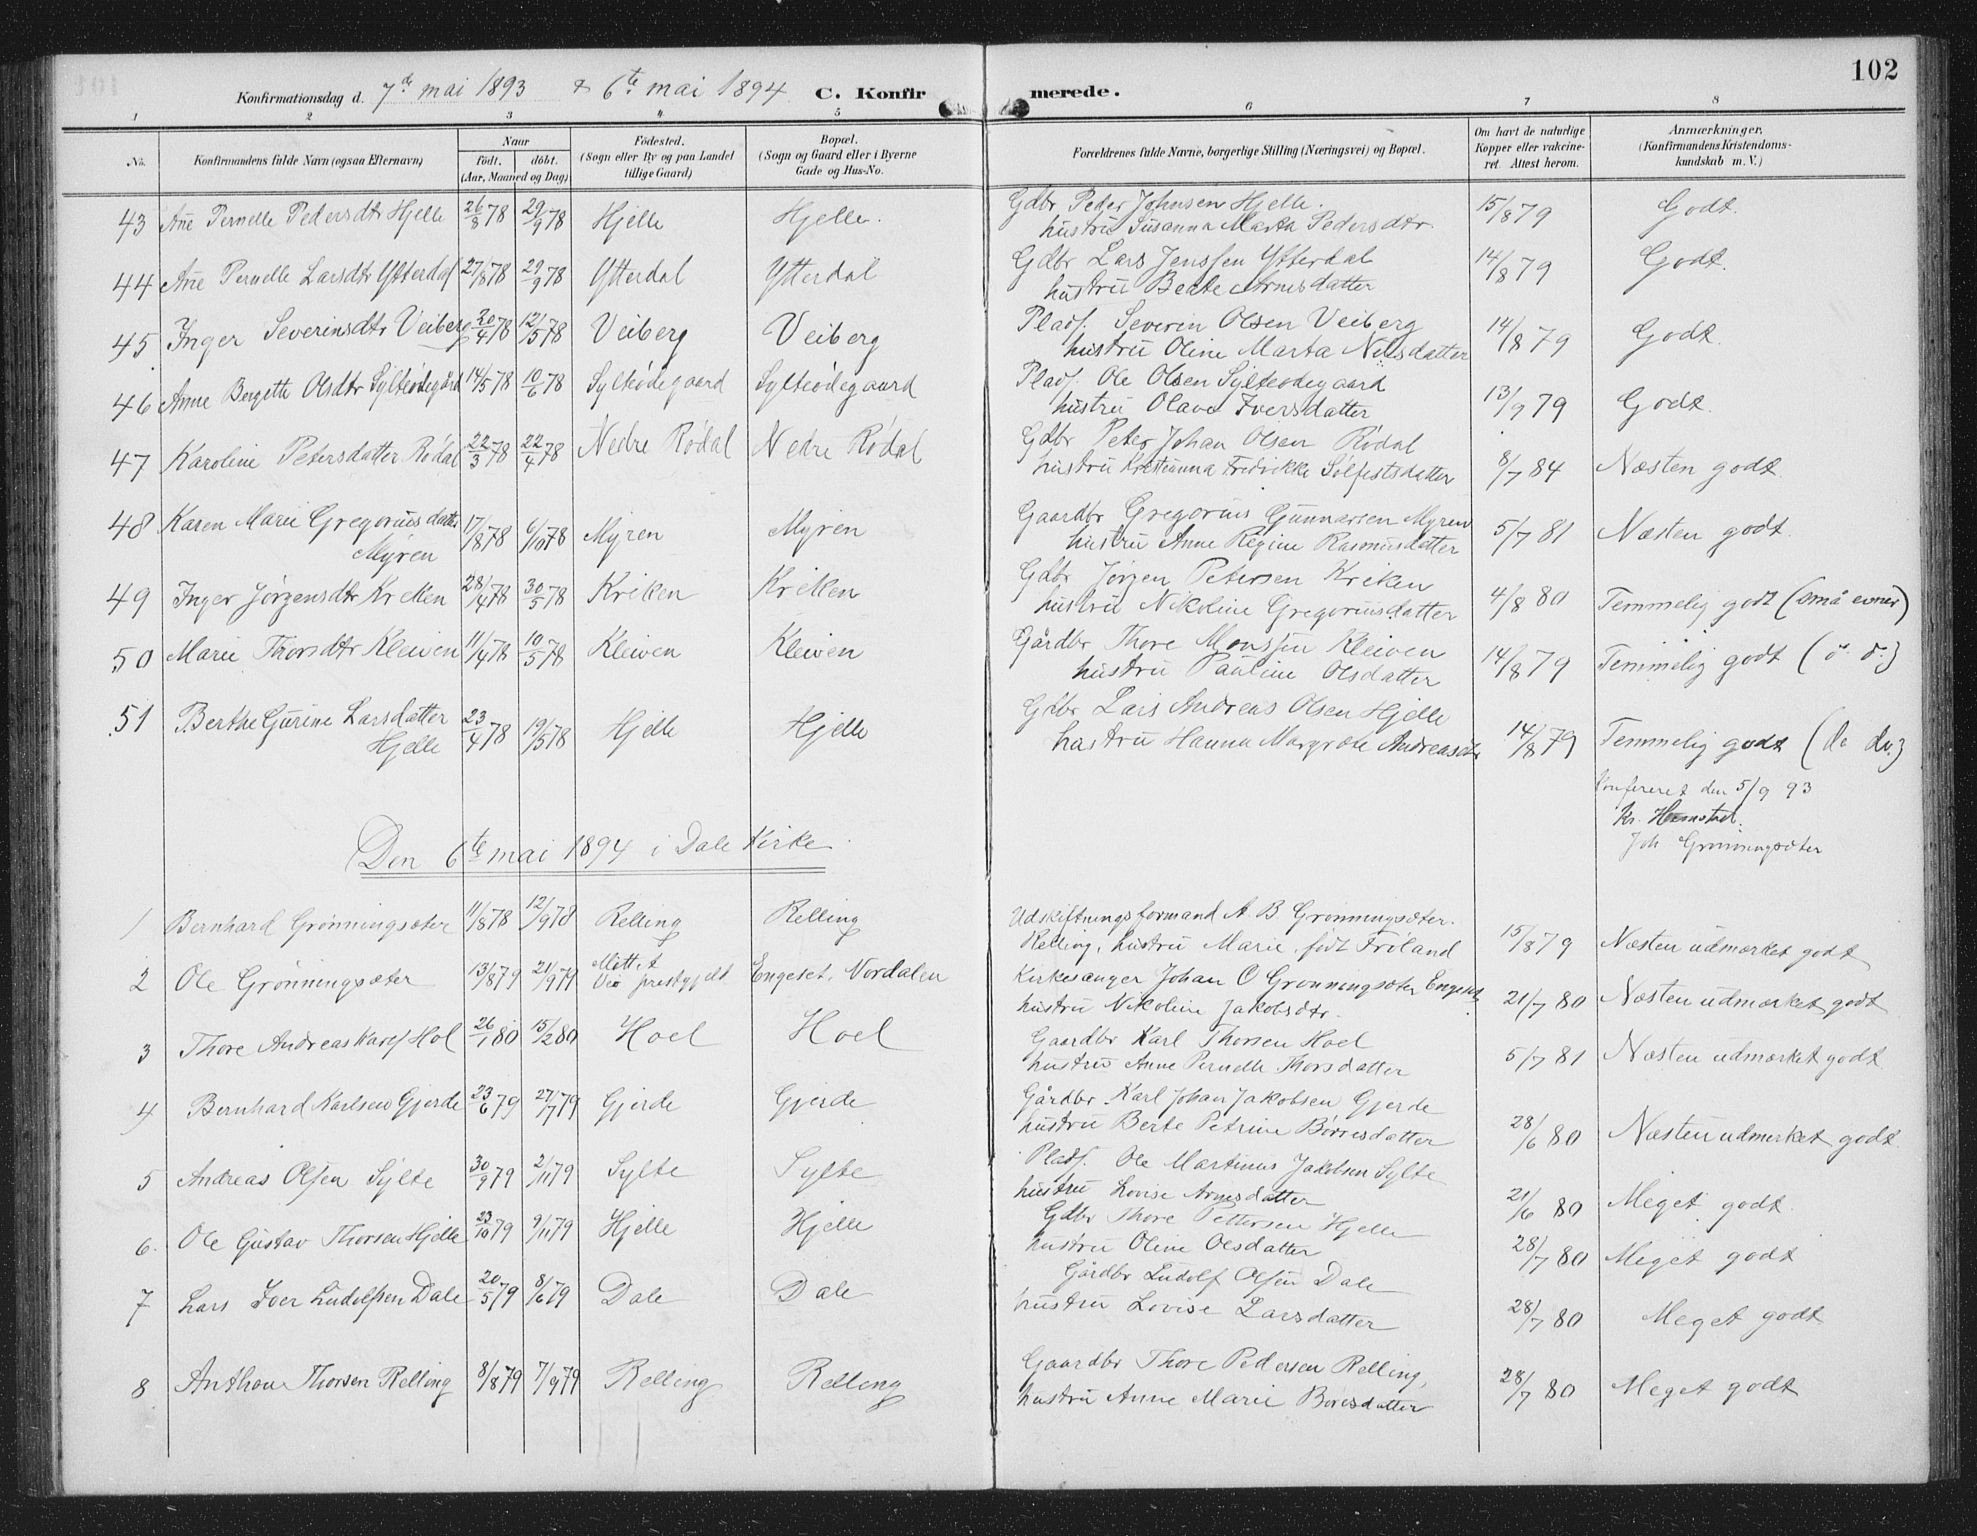 102
Konfirmationsdag d. 7de mai 1893 & 6te mai 1894. C. Konfirmerede.
1 2 3 4 5 6 7 8
No. Konfirmandens fulde Navn (ogsaa Efternavn) Naar födt. döbt. (Aar, Maaned og Dag) Födested. (Sogn eller By og paa Landet tillige Gaard) Bopæl. (Sogn og Gaard eller i Byerne Gade og Hus-No. Forældrenes fulde Navne, borgerlige Stilling (Næringsvei) og Bopæl. Om havt de naturlige Kopper eller vakcineret. Attest herom. Anmærkninger, (Konfirmandens Kristendomskundskab m. V.)
43 Ane Pernelle Pedersdtr Hjelle 26/8 78 29/9 78 Hjelle Hjelle. Gdbr Peder Johnsen Hjelle. 15/8 79 Godt.
hustru Susanna Marta Pedersdtr.
44 Ane Pernelle Larsdtr Ytterdal 27/8 78 29/9 78 Ytterdal Ytterdal Gdbr Lars Jenssen Ytterdal 14/8 79 Godt.
hustru Beate Arnesdatter
45 Inger Severinsdtr Veiberg 20/4 78 12/5 78 Veiberg Veiberg Pladf. Severin Olsen Veiberg 14/8 79 Godt.
hustru Oline Marta Nilsdatter
46 Anne Bergette Olsdtr Sylteödegård 14/5 78 10/6 78 Sylteödegaard Sylteödegaard Pladf. Ole Olsen Sylteödegaard 13/9 79 Godt.
hustru Olave Iversdatter
47 Karoline Petersdatter Rødal 22/3 78 22/4 78 Nedre Rødal Nedre Rødal Gdbr Peter Johan Olsen Rødal 8/7 84 Næsten godt.
hustru Kristianna Fredrikke Sölfestsdatter
48 Karen Marie Gregoriusdatter 17/8 78 6/10 78 Myren Myren Gaardbr Gregorius Gunnarsen Myren 5/7 81 Næsten godt.
Myren hustru Anne Regine Rasmusdatter
49 Inger Jørgensdtr Kreken 28/4 78 30/5 78 Kriken Kriken Gdbr Jørgen Petersen Kreken 4/8 80 Temmelig godt (små evner)
hustru Nikoline Gregoriusdatter
50 Marie Thorsdtr Kleiven 11/4 78 10/5 78 Kleiven Kleiven Gårdbr Thore Monssen Kleiven 14/8 79 Temmelig godt (d. d.)
hustru Pauline Olsdatter
51 Berthe Gurine Larsdatter 23/4 78 19/5 78 Hjelle Hjelle Gdbr Lars Andreas Olsen Hjelle 14/8 79 Temmelig godt (do do.)
Hjelle hustru Hanna Margrete Andreasdtr
Konfereret den 5/9 93
Kr.
Joh Grønningsæter
Den 6te mai 1894 i Dale Kirke.
1 Bernhard Grønningsæter 11/8 78 12/9 78 Relling Relling Udskiftningsformand A. B. Grønningsæter. 15/8 79 Næsten udmærket godt
Relling, hustru Marie, født Frøland
2 Ole Grønningsæter 13/8 79 21/9 79 prestgjeld Engeset, Nordalen Kirkesanger Johan O Grønningsæter Engeset 21/7 80 Næsten udmærket godt
hustru Nikoline Jakobsdtr.
3 Thore Andreas Karls Hol 26/1 80 15/2 80 Hoel Hoel Gaardbr Karl Thorsen Hoel 5/7 81 Næsten udmærket godt
hustru Anne Pernelle Thorsdatter
4 Bernhard Karlsen Gjerde 23/6 79 27/7 79 Gjerde Gjerde Gårdbr. Karl Johan Jakobsen Gjerde 28/6 80 Næsten udmerket godt
hustru Berte Petrine Börresdatter
5 Andreas Olsen Sylte 30/9 79 2/11 79 Sylte Sylte Pladf. Ole Martinus Jakobsen Sylte 21/6 80 Meget godt.
hustru Lovise Arnesdatter
6. Ole Gustav Thorsen Hjelle 23/10 79 9/11 79 Hjelle Hjelle Gdbr Thore Pettersen Hjelle 28/7 80 Meget godt
hustru Oline Olsdatter
7 Lars Iver Ludolfsen Dale 20/5 79 8/6 79 Dale Dale Gårdbr Ludolf Olsen Dale 28/7 80 Meget godt
hustru Lovise Larsdatter
8 Anthon Thorsen Relling 8/8 79 7/9 79 Relling Relling Gaardbr Thore Pedersen Relling, 28/7 80 Meget godt
hustru Anne Marie Börresdatter